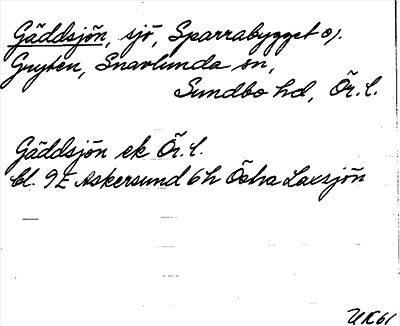 Gäddsjön, sjö, Sparrabygget o.
Gryten, Snavlunda sn,
Sundbo hd, Ör. l.
Gäddsjön ek Ör. l.
bl. 9E Askersund 6h Östra Laxsjön
UK61